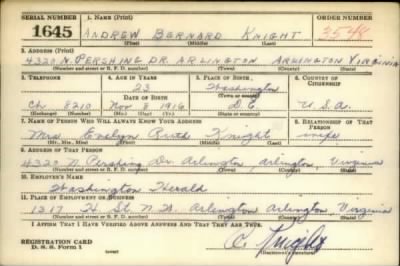 SERIAL NUMBER 1. NAME (Print) ORDER NUMBER
1645 ANDREW BERNARD KNIGHT 3548
(First) (Middle) (Last)
2. ADDRESS (Print)
4320 N. PERSHING DR. ARLINGTON ARLINGTON VIRGINIA
(Number and street or R. F. D. number) (Town) (County) (State)
3. TELEPHONE 4. AGE IN YEARS 5. PLACE OF BIRTH 6. COUNTRY OF CITIZENSHIP
23 Washington
DATE OF BIRTH (Town or county)
Ch 8210 Nov 8 1916 D C U.S.A.
(Exchange) (Number) (Mo.) (Day) (Yr.) (State or country)
7. NAME OF PERSON WHO WILL ALWAYS KNOW YOUR ADDRESS 8. RELATIONSHIP OF THAT PERSON
Mrs Evelyn Ruth Knight wife
(Mr., Mrs., Miss) (First) (Middle) (Last)
9. ADDRESS OF THAT PERSON
4320 N Pershing Dr. Arlington, Arlington, Virginia
(Number and street or R. F. D. number) (Town) (County) (State)
10. EMPLOYER'S NAME
Washington Herald
11. PLACE OF EMPLOYMENT OR BUSINESS
1317 H. St. N.W. Arlington Arlington Virginia
(Number and street or R. F. D. number) (Town) (County) (State)
I AFFIRM THAT I HAVE VERIFIED ABOVE ANSWERS AND THAT THEY ARE TRUE.
REGISTRATION CARD
D. S. S. Form 1 Knight
(Registrant's signature)